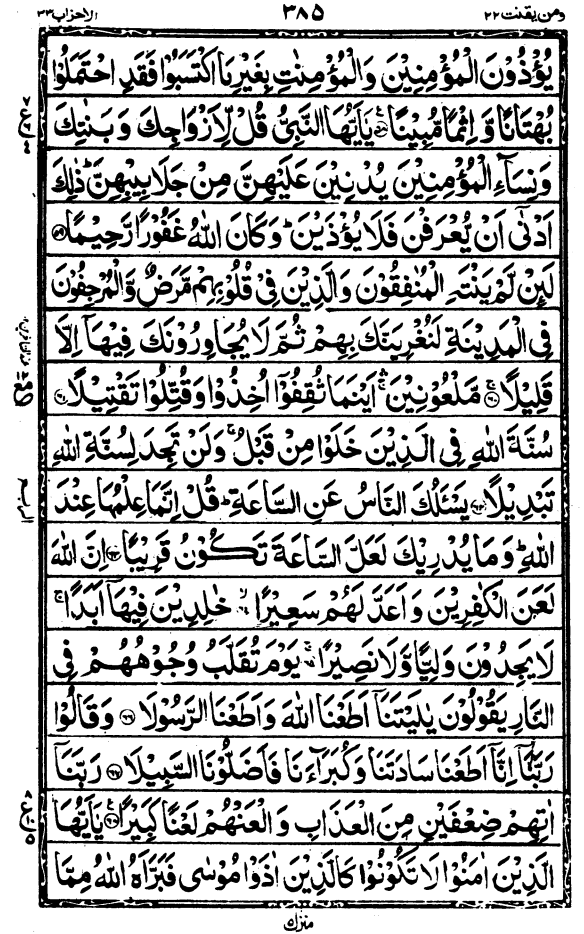 ومن یقنت ٢٢ ٣٨٥ الاحزاب ٣٣
يُؤْذُوْنَ الْمُؤْمِنِيْنَ وَالْمُؤْمِنٰتِ بِغَيْرِ مَا اكْتَسَبُوْا فَقَدِ احْتَمَلُوْا
بُهْتَانًا وَّاِثْمًا مُّبِيْنًا ۝٥٨ يٰۤاَيُّهَا النَّبِيُّ قُلْ لِّاَزْوَاجِكَ وَبَنٰتِكَ
وَنِسَآءِ الْمُؤْمِنِيْنَ يُدْنِيْنَ عَلَيْهِنَّ مِنْ جَلَابِيْبِهِنَّ ؕ ذٰلِكَ
اَدْنٰۤى اَنْ يُّعْرَفْنَ فَلَا يُؤْذَيْنَ ؕ وَكَانَ اللّٰهُ غَفُوْرًا رَّحِيْمًا ۝٥٩
لَئِنْ لَّمْ يَنْتَهِ الْمُنٰفِقُوْنَ وَالَّذِيْنَ فِيْ قُلُوْبِهِمْ مَّرَضٌ وَّالْمُرْجِفُوْنَ
فِي الْمَدِيْنَةِ لَنُغْرِيَنَّكَ بِهِمْ ثُمَّ لَا يُجَاوِرُوْنَكَ فِيْهَاۤ اِلَّا
قَلِيْلًا ۝٦٠ مَّلْعُوْنِيْنَ ۛ اَيْنَمَا ثُقِفُوْۤا اُخِذُوْا وَقُتِّلُوْا تَقْتِيْلًا ۝٦١
سُنَّةَ اللّٰهِ فِي الَّذِيْنَ خَلَوْا مِنْ قَبْلُ ۚ وَلَنْ تَجِدَ لِسُنَّةِ اللّٰهِ
تَبْدِيْلًا ۝٦٢ يَسْـَٔلُكَ النَّاسُ عَنِ السَّاعَةِ ؕ قُلْ اِنَّمَا عِلْمُهَا عِنْدَ
اللّٰهِ ؕ وَمَا يُدْرِيْكَ لَعَلَّ السَّاعَةَ تَكُوْنُ قَرِيْبًا ۝٦٣ اِنَّ اللّٰهَ
لَعَنَ الْكٰفِرِيْنَ وَاَعَدَّ لَهُمْ سَعِيْرًا ۝٦٤ خٰلِدِيْنَ فِيْهَاۤ اَبَدًا ۚ
لَا يَجِدُوْنَ وَلِيًّا وَّلَا نَصِيْرًا ۝٦٥ يَوْمَ تُقَلَّبُ وُجُوْهُهُمْ فِي
النَّارِ يَقُوْلُوْنَ يٰلَيْتَنَاۤ اَطَعْنَا اللّٰهَ وَاَطَعْنَا الرَّسُوْلَا ۝٦٦ وَقَالُوْا
رَبَّنَاۤ اِنَّاۤ اَطَعْنَا سَادَتَنَا وَكُبَرَآءَنَا فَاَضَلُّوْنَا السَّبِيْلَا ۝٦٧ رَبَّنَاۤ
اٰتِهِمْ ضِعْفَيْنِ مِنَ الْعَذَابِ وَالْعَنْهُمْ لَعْنًا كَبِيْرًا ۝٦٨ يٰۤاَيُّهَا
الَّذِيْنَ اٰمَنُوْا لَا تَكُوْنُوْا كَالَّذِيْنَ اٰذَوْا مُوْسٰى فَبَرَّاَهُ اللّٰهُ مِمَّا
منزل ٥